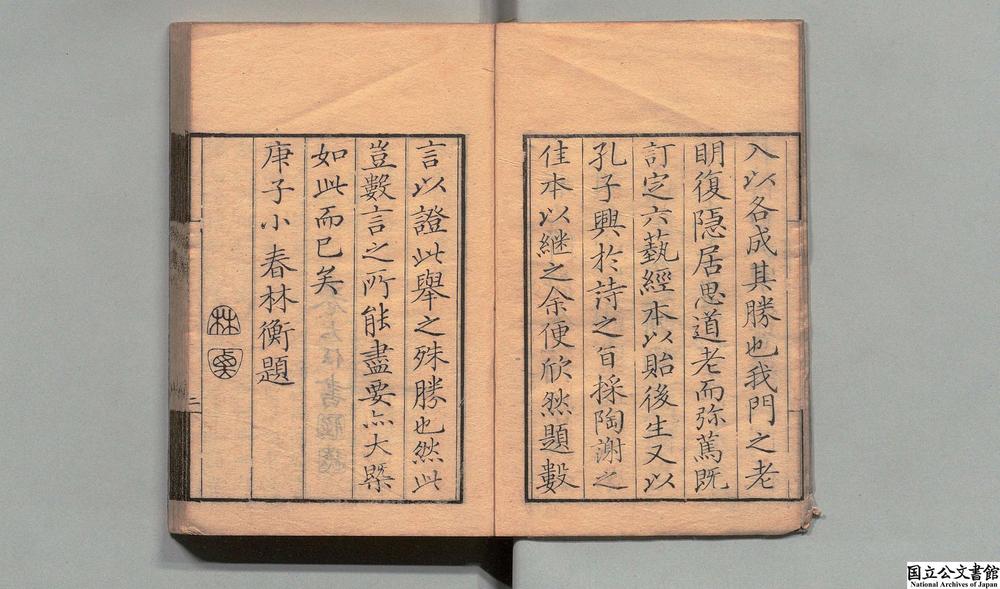 入以各成其勝也我門之老
明復隱居思道老而弥篤既
訂定六藝經本以貽後生又以
孔子興於詩之旨採陶謝之
佳本以継之余便欣然題數
言以證此舉之殊勝也然此
豈數言之所能盡要亦大槩
如此而已矣
庚子小春林衡題
林
二
国立公文書館
National Archives of Japan